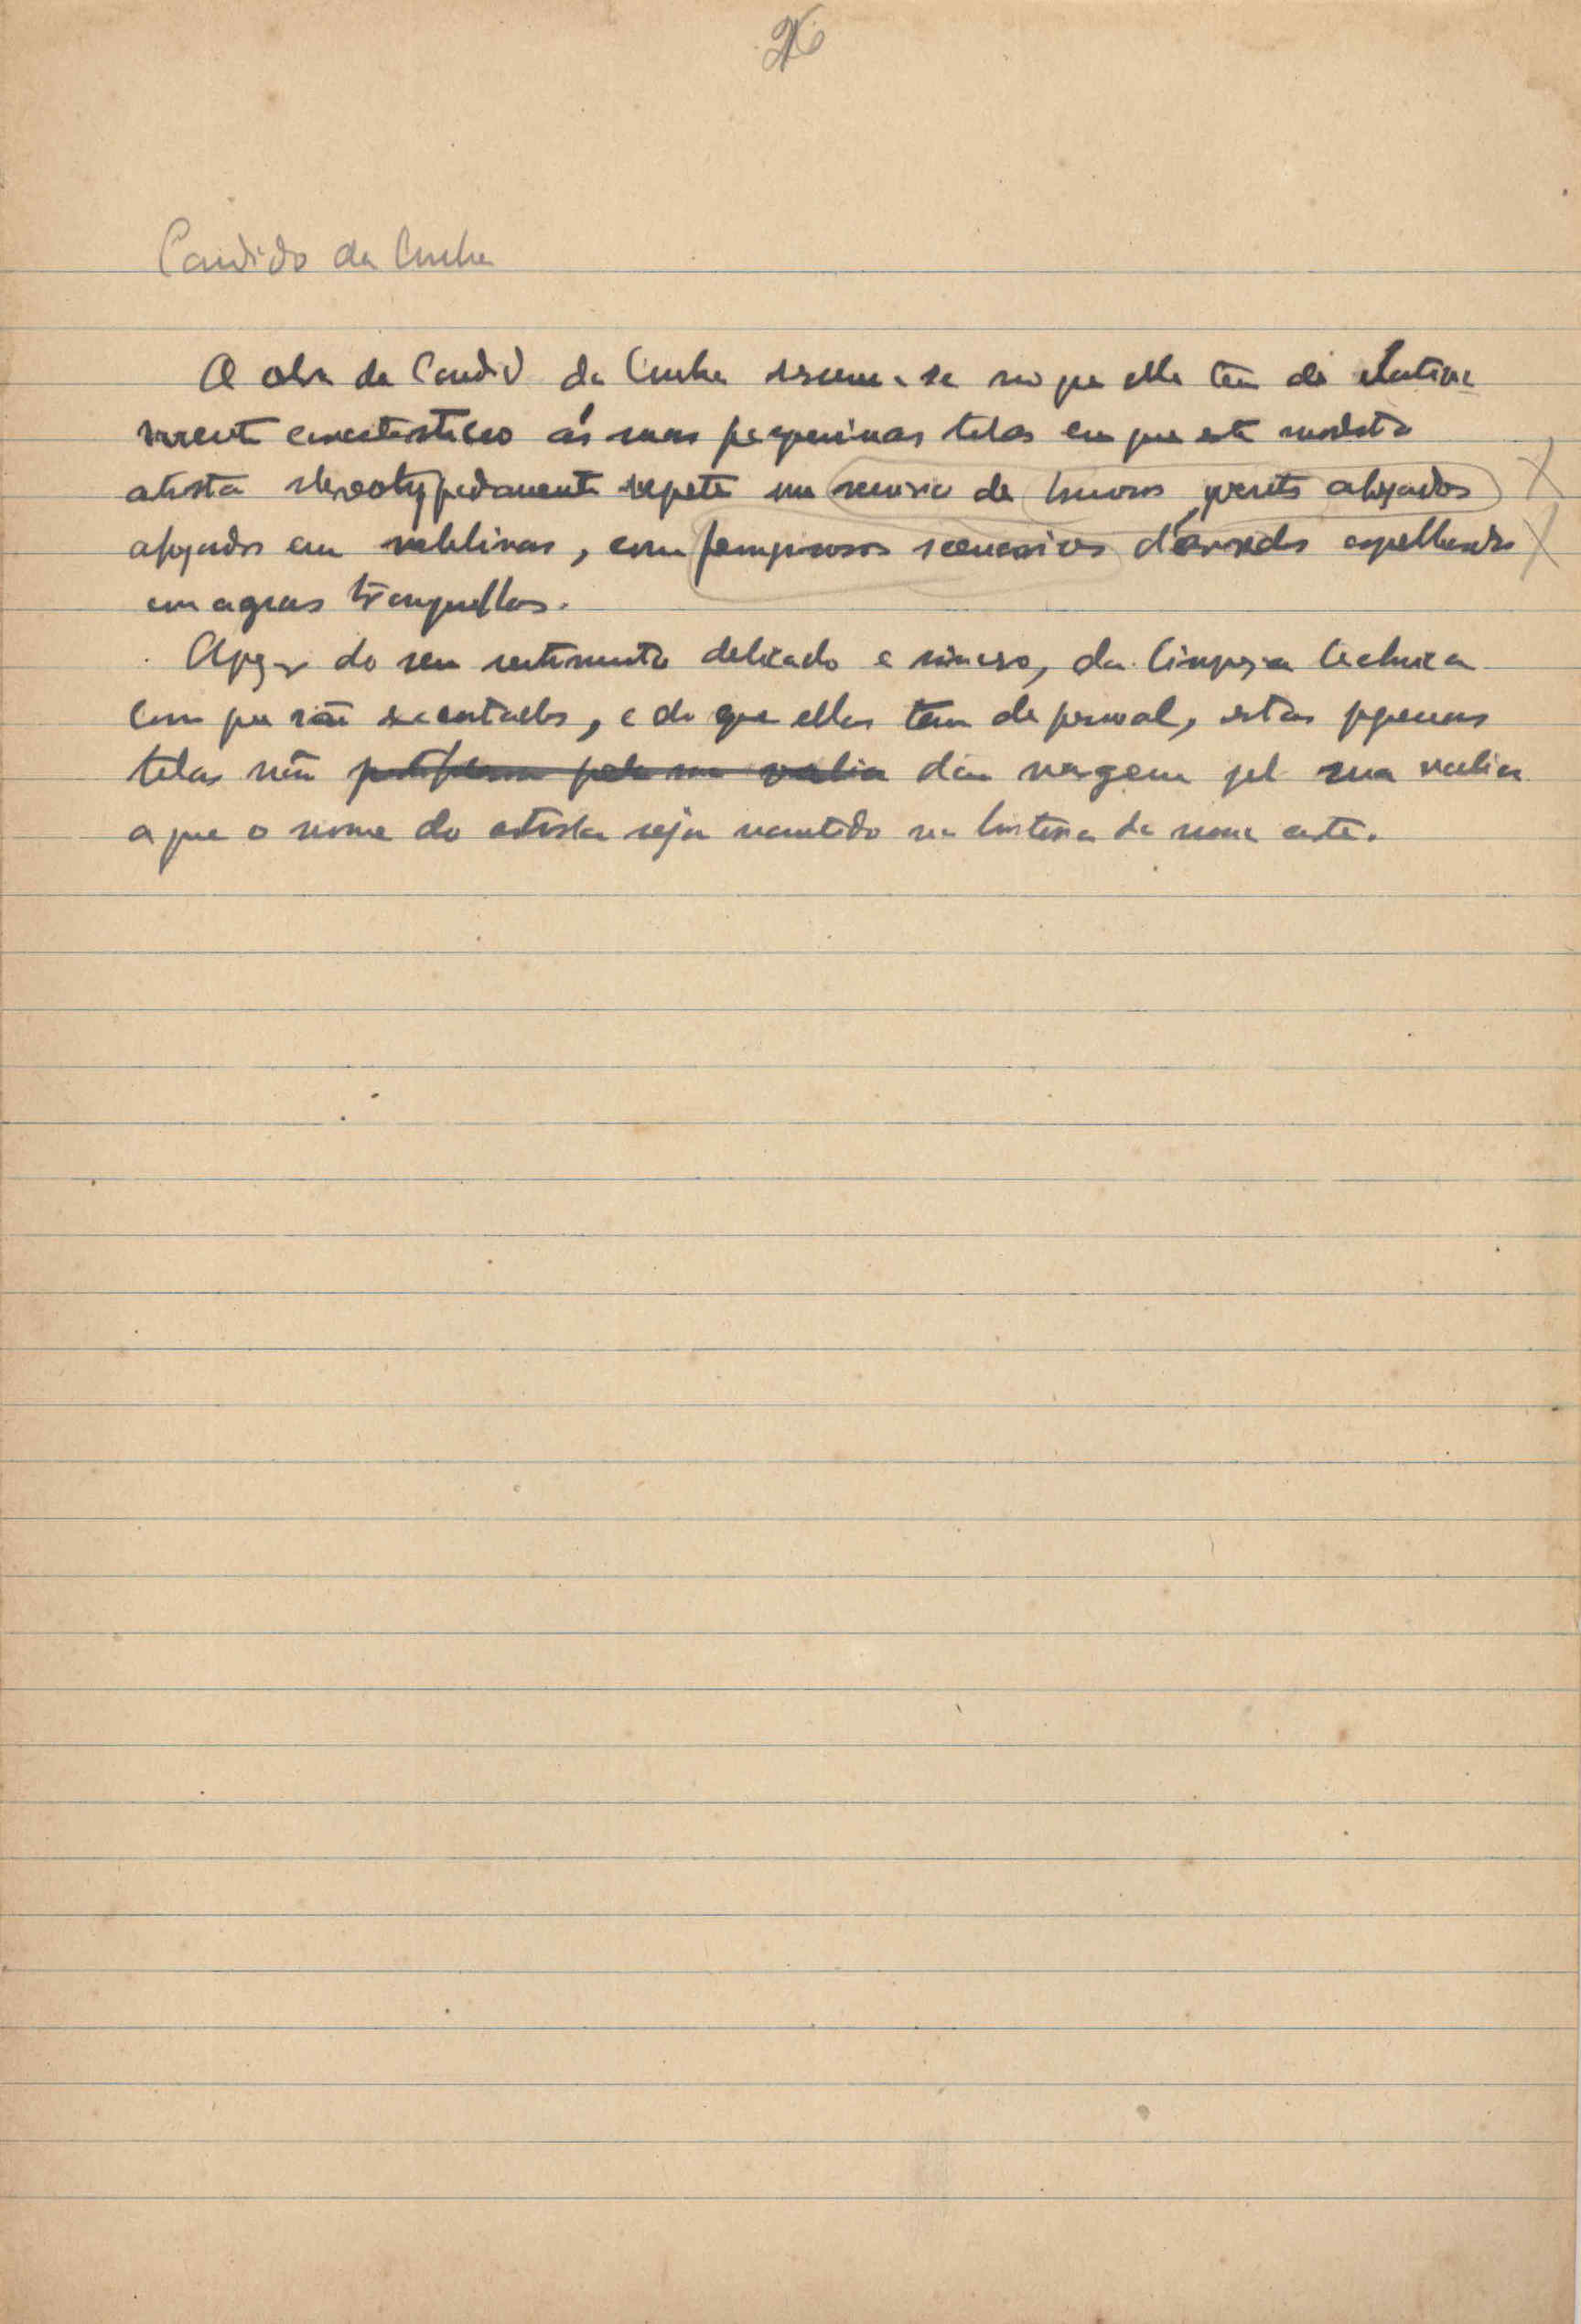 Candido da Cunha
A obra de Candido da Cunha resume-se no que ella tem de relativa
mente caracteristico ás suas pequeninas telas em que este modesto
artista stereotypadamente repete um de poentes afogados
afogados em neblinas, com d'arvoredos espelhando
em aguas tranquillas.
Apezar do seu sentimento delicado e sincero, da limpeza technica
com que são executados, e do que ellas tem de pessoal, estas pequenas
telas não dão margem pela sua valia
a que o nome do artista seja mantido na historia da nossa arte.